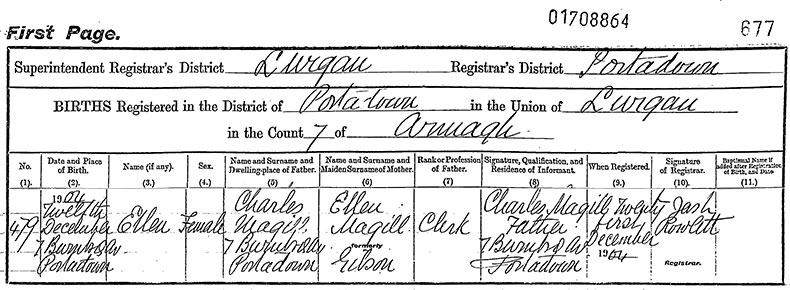 01708864
677
First Page.
Superintendent Registrar's District Lurgan Registrar's District Portadown
BIRTHS Registered in the District of Portadown in the Union of Lurgan
in the County of Armagh
No. (1). Date and Place of Birth. (2). Name (if any). (3.) Sex. (4.) Name and Surname and Dwelling-place of Father. (5) Name and Surname and Maiden Surname of Mother. (6) Rank or Profession of Father. (7) Signature, Qualification, and Residence of Informant. (8) When Registered. (9.) Signature of Registrar. (10.) Baptismal Name if added after Registration of Birth, and Date. (11.)
479
1904
Twelfth
December
7
Portadown
Ellen
Female
Charles
Magill
7
Portadown
Ellen
Magill
formerly
Gibson
Clerk
Charles Magill
Father
7
Portadown
Twenty
First
December
1904
Rowlett
Registrar.